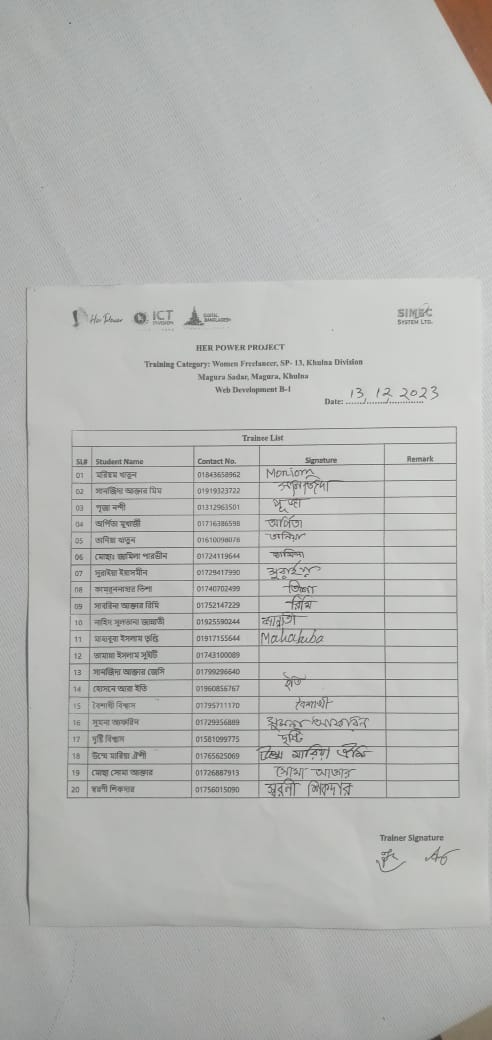 Her Power ICT DIVISION DIGITAL BANGLADESH SIMEC SYSTEM LTD.
HER POWER PROJECT
Training Category: Women Freelancer, SP- 13, Khulna Division
Magura Sadar, Magura, Khulna
Web Development B-1
Date: 13 12 2023
Trainee List
SL# Student Name Contact No. Signature Remark
01 মরিয়ম খাতুন 01843658962 Moriom
02 সানজিদা আক্তার মিম 01919323722 সানজিদা
03 পূজা নন্দী 01312963501 পূজা
04 অর্পিতা মুখার্জী 01716386598 অর্পিতা
05 তানিয়া খাতুন 01610098078 তানিয়া
06 মোছাঃ জামিলা পারভীন 01724119644 জামিলা
07 সুরাইয়া ইয়াসমীন 01729417990 সুরাইয়া
08 কামরুননাহার তিশা 01740702499 তিশা
09 সাবরিনা আক্তার রিমি 01752147229 রিমি
10 নাহিদ সুলতানা জান্নাতী 01925590244 জান্নাতী
11 মাহবুবা ইসলাম তৃপ্তি 01917155644 Mahabuba
12 তামান্না ইসলাম সুইটি 01743100089
13 সানজিদা আক্তার জেসি 01799296640
14 হোসনে আরা ইতি 01960856767 ইতি
15 বৈশাখী বিশ্বাস 01795711170 বৈশাখী
16 সুমনা আফরিন 01729356889 সুমনা আফরিন
17 দৃষ্টি বিশ্বাস 01581099775 দৃষ্টি
18 উম্মে মারিয়া ঐশী 01765625069 উম্মে মারিয়া ঐশী
19 মোছাঃ সোমা আক্তার 01726887913 সোমা আক্তার
20 স্বরণী শিকদার 01756015090 স্বরণী শিকদার
Trainer Signature